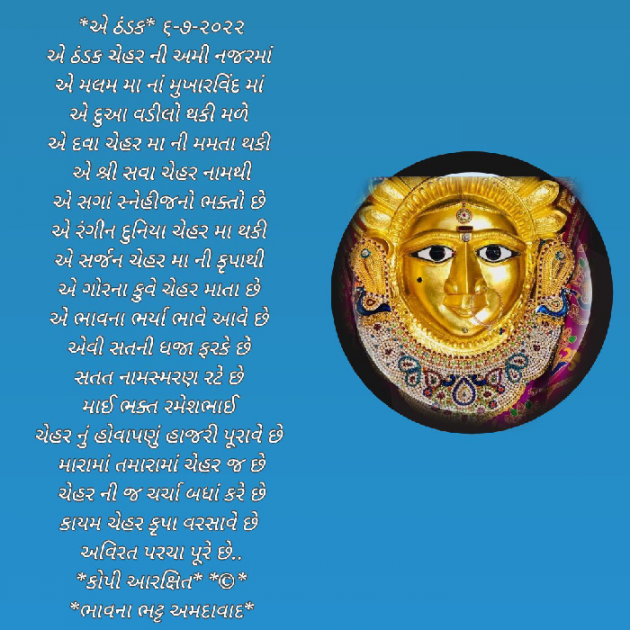 *એ ઠંડક* ૬-૭-૨૦૨૨
એ ઠંડક ચેહર ની અમી નજરમાં
એ મલમ મા નાં મુખારવિંદ માં
એ દુઆ વડીલો થકી મળે
એ દવા ચેહર મા ની મમતા થકી
એ શ્રી સવા ચેહર નામથી
એ સગાં સ્નેહીજનો ભક્તો છે
એ રંગીન દુનિયા ચેહર મા થકી
એ સર્જન ચેહર મા ની કૃપાથી
એ ગોરના કુવે ચેહર માતા છે
એ ભાવના ભર્યા ભાવે આવે છે
એવી સતની ધજા ફરકે છે
સતત નામસ્મરણ રટે છે
માઈ ભક્ત રમેશભાઈ
ચેહર નું હોવાપણું હાજરી પૂરાવે છે
મારામાં તમારામાં ચેહર જ છે
ચેહર ની જ ચર્ચા બધાં કરે છે
કાયમ ચેહર કૃપા વરસાવે છે
અવિરત પરચા પૂરે છે..
*કોપી આરક્ષિત* *©*
*ભાવના ભટ્ટ અમદાવાદ*